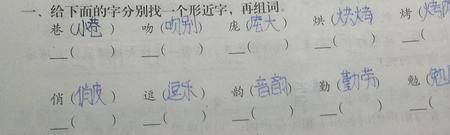 一、给下面的字分别找一个形近字,再组词。
巷(小巷) 吻(吻别) 庞(庞大) 烘(烘烤) 烤(
__( ) __( ) __( ) __( ) __(
俏(俏皮) 逗(逗乐) 韵(音韵) 勤(勤劳) 勉(勉
__( ) __( ) __( ) __( ) __(